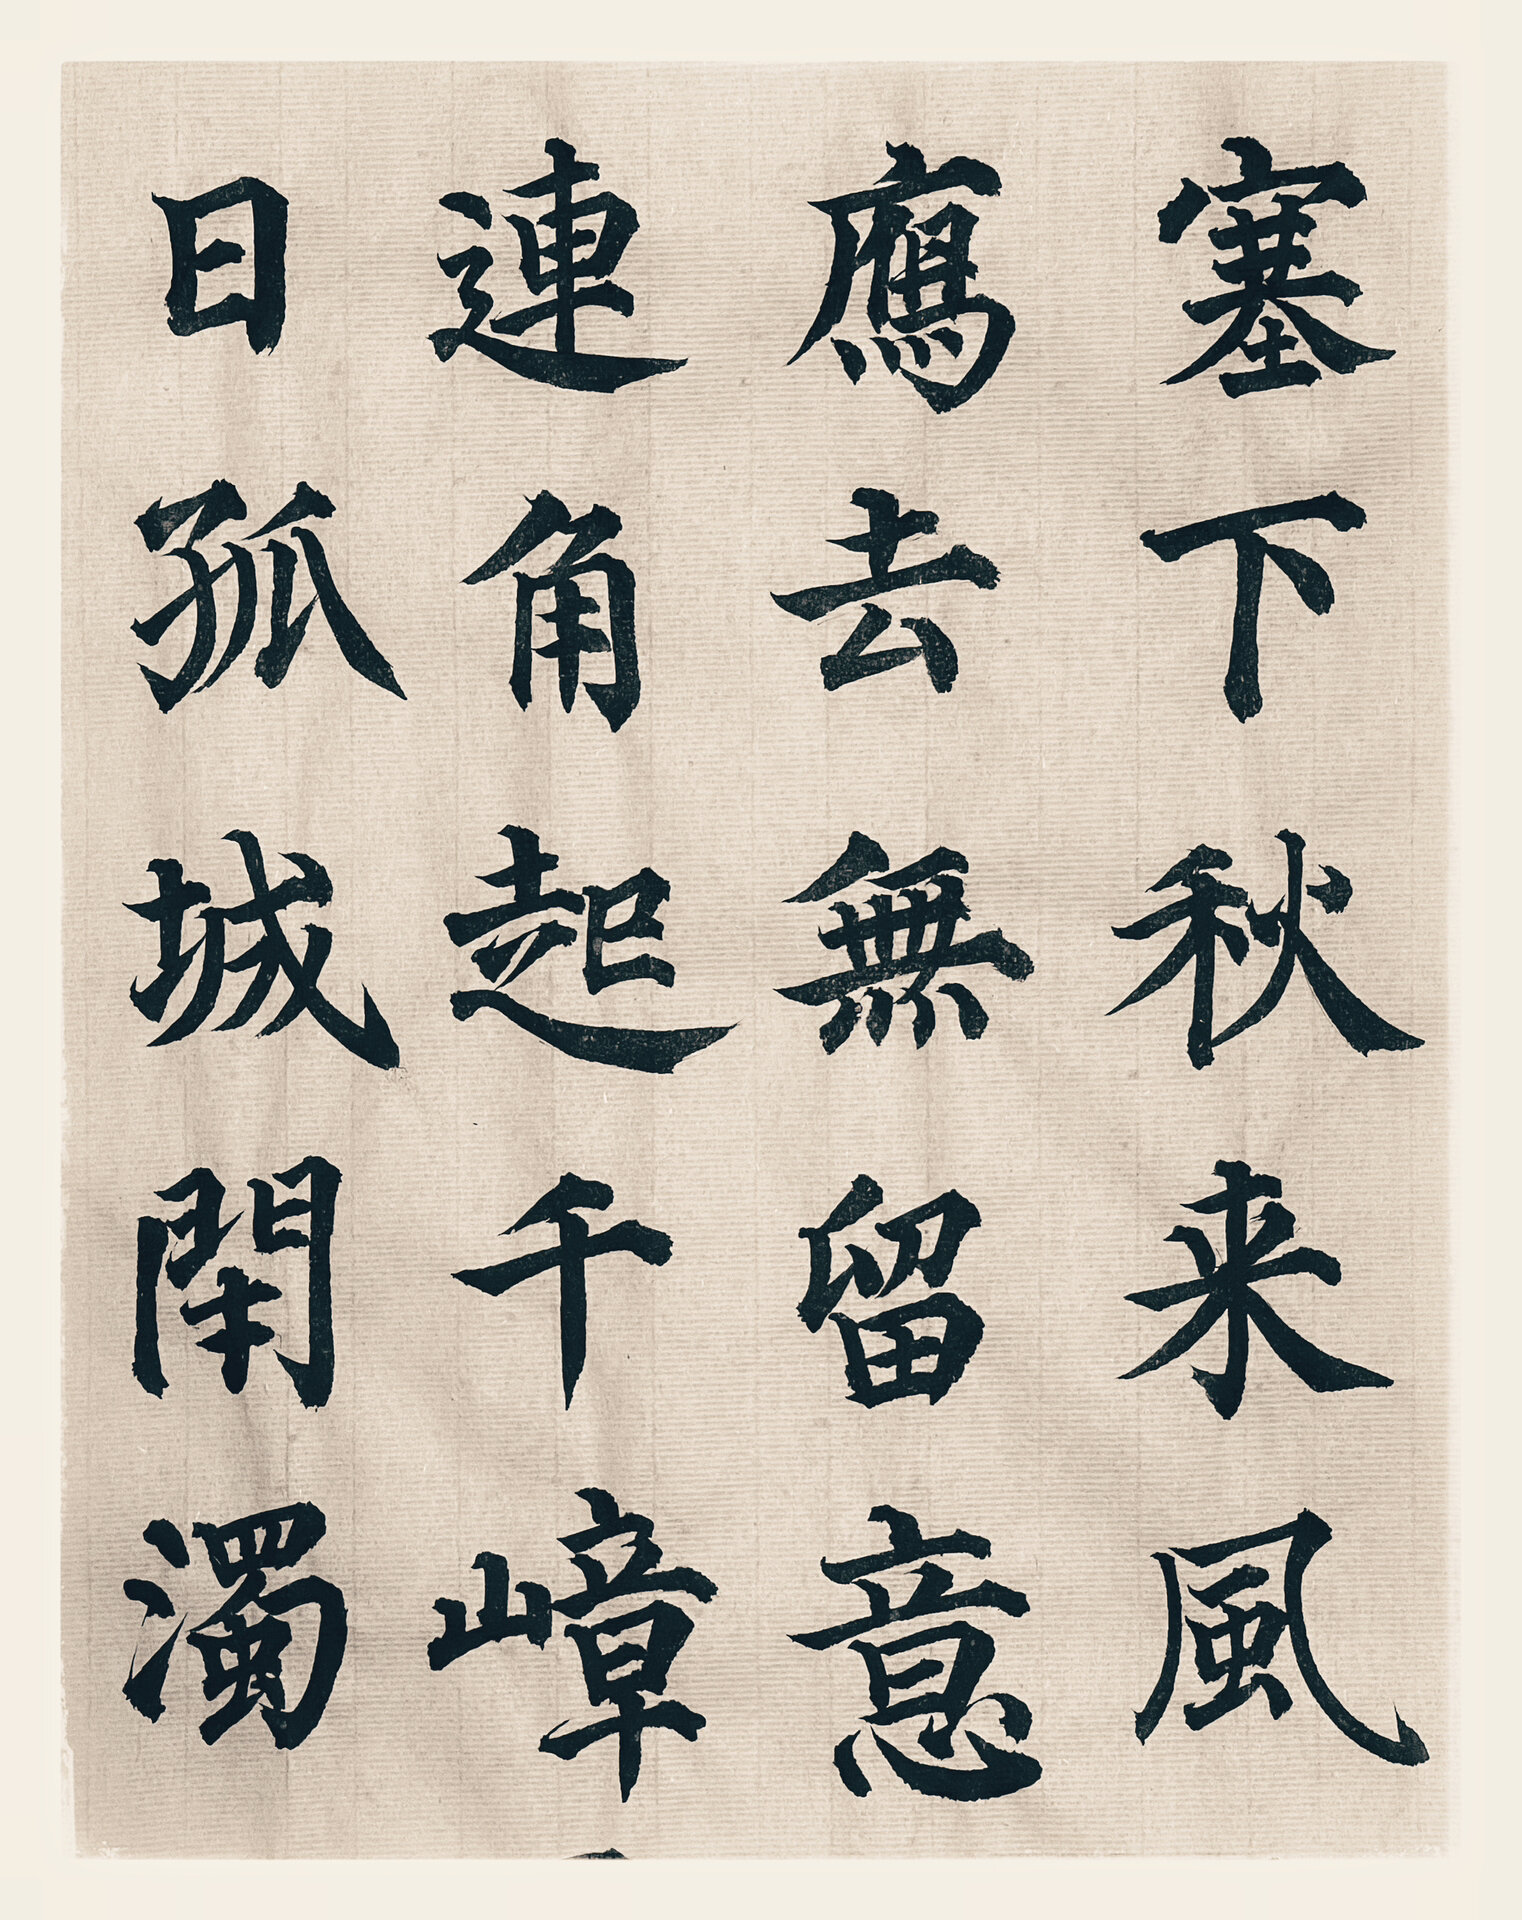 塞下秋来風
鴈去無留意
連角起千嶂
日孤城閉濁